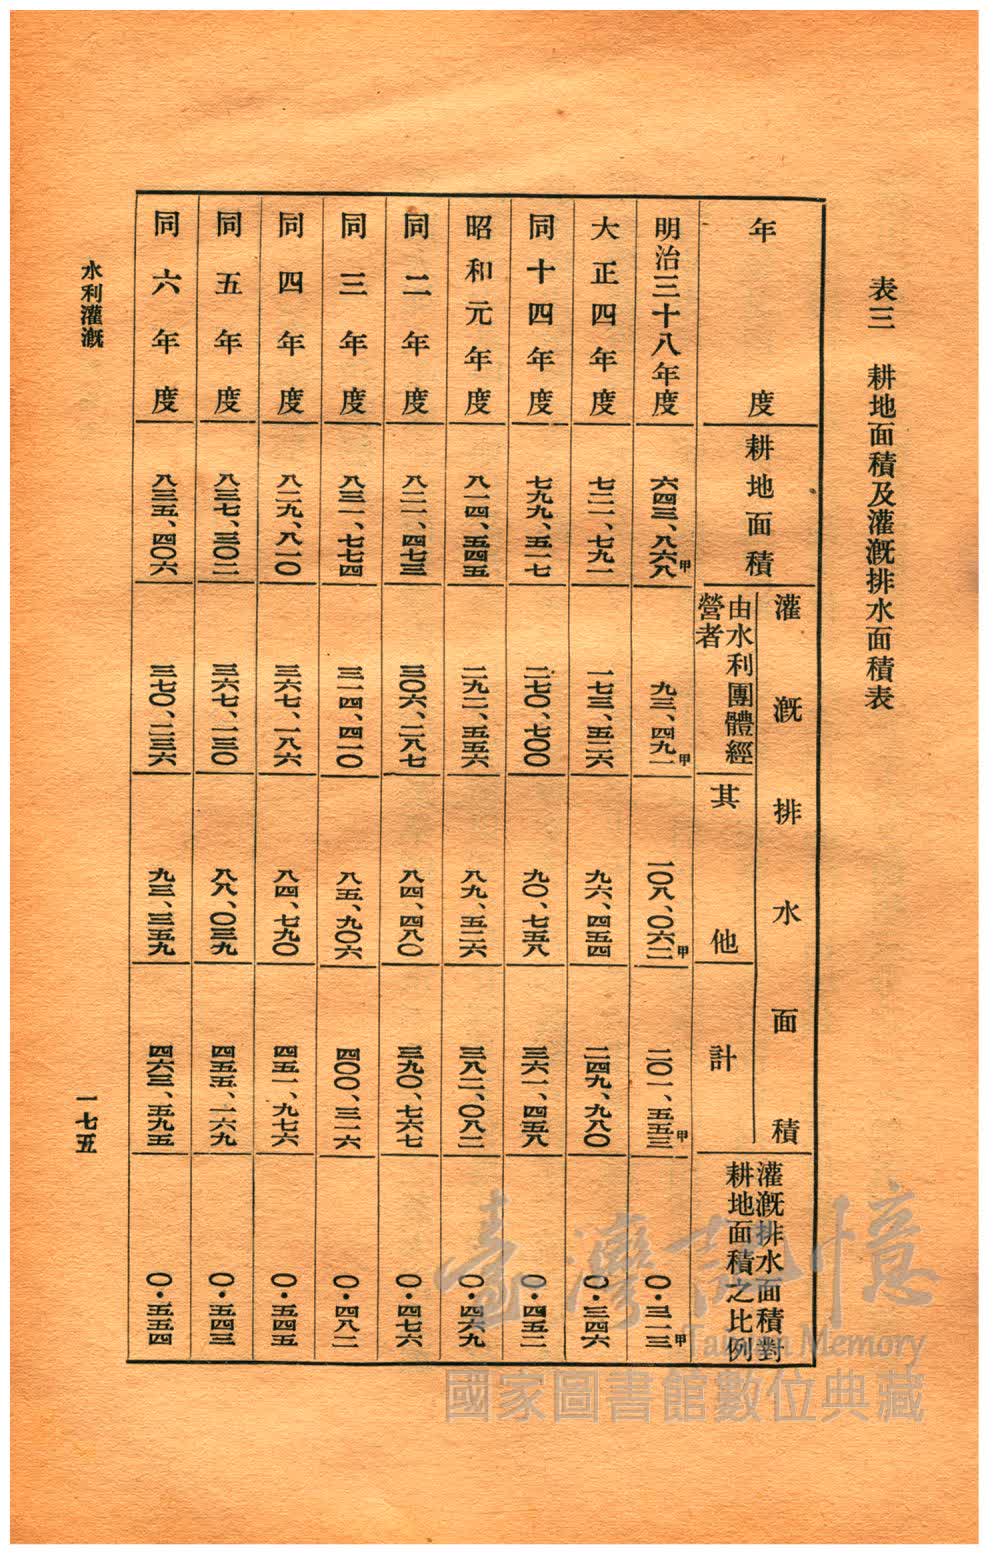 表三　耕地面積及灌漑排水面積表
年度
耕地面積
灌漑排水面積
由水利團體經
營者
其他
計
灌漑排水面積對
耕地面積之比例
明治三十八年度　六四三、八六八甲　九三、四九一甲　一〇八、〇六二甲　二〇一、五五三甲　〇・三一三甲
大正四年度　七二一、七九一　一七三、五二六　九六、四五四　二四九、九八〇　〇・三四六
同十四年度　七九九、五一七　二七〇、七〇〇　九〇、七五八　三六一、四五八　〇・四五二
昭和元年度　八一四、五四五　二九二、五五六　八九、五二六　三八二、〇八二　〇・四六九
同二年度　八二一、四七三　三〇六、二八七　八四、四八〇　三九〇、七六七　〇・四七六
同三年度　八三一、七七四　三一四、四一〇　八五、九〇六　四〇〇、三一六　〇・四八二
同四年度　八二九、八一〇　三六七、一八六　八四、七九〇　四五一、九七六　〇・五四五
同五年度　八三七、三〇二　三六七、一三〇　八八、〇三九　四五五、一六九　〇・五四三
同六年度　八三五、四〇六　三七〇、二三六　九三、三五九　四六三、五九五　〇・五五四
水利灌漑
一七五
臺灣記憶
Taiwan Memory
國家圖書館數位典藏